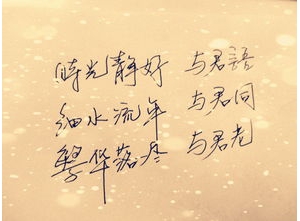 時光静好 与君語
细水流年 与君同
繁华落尽 与君老